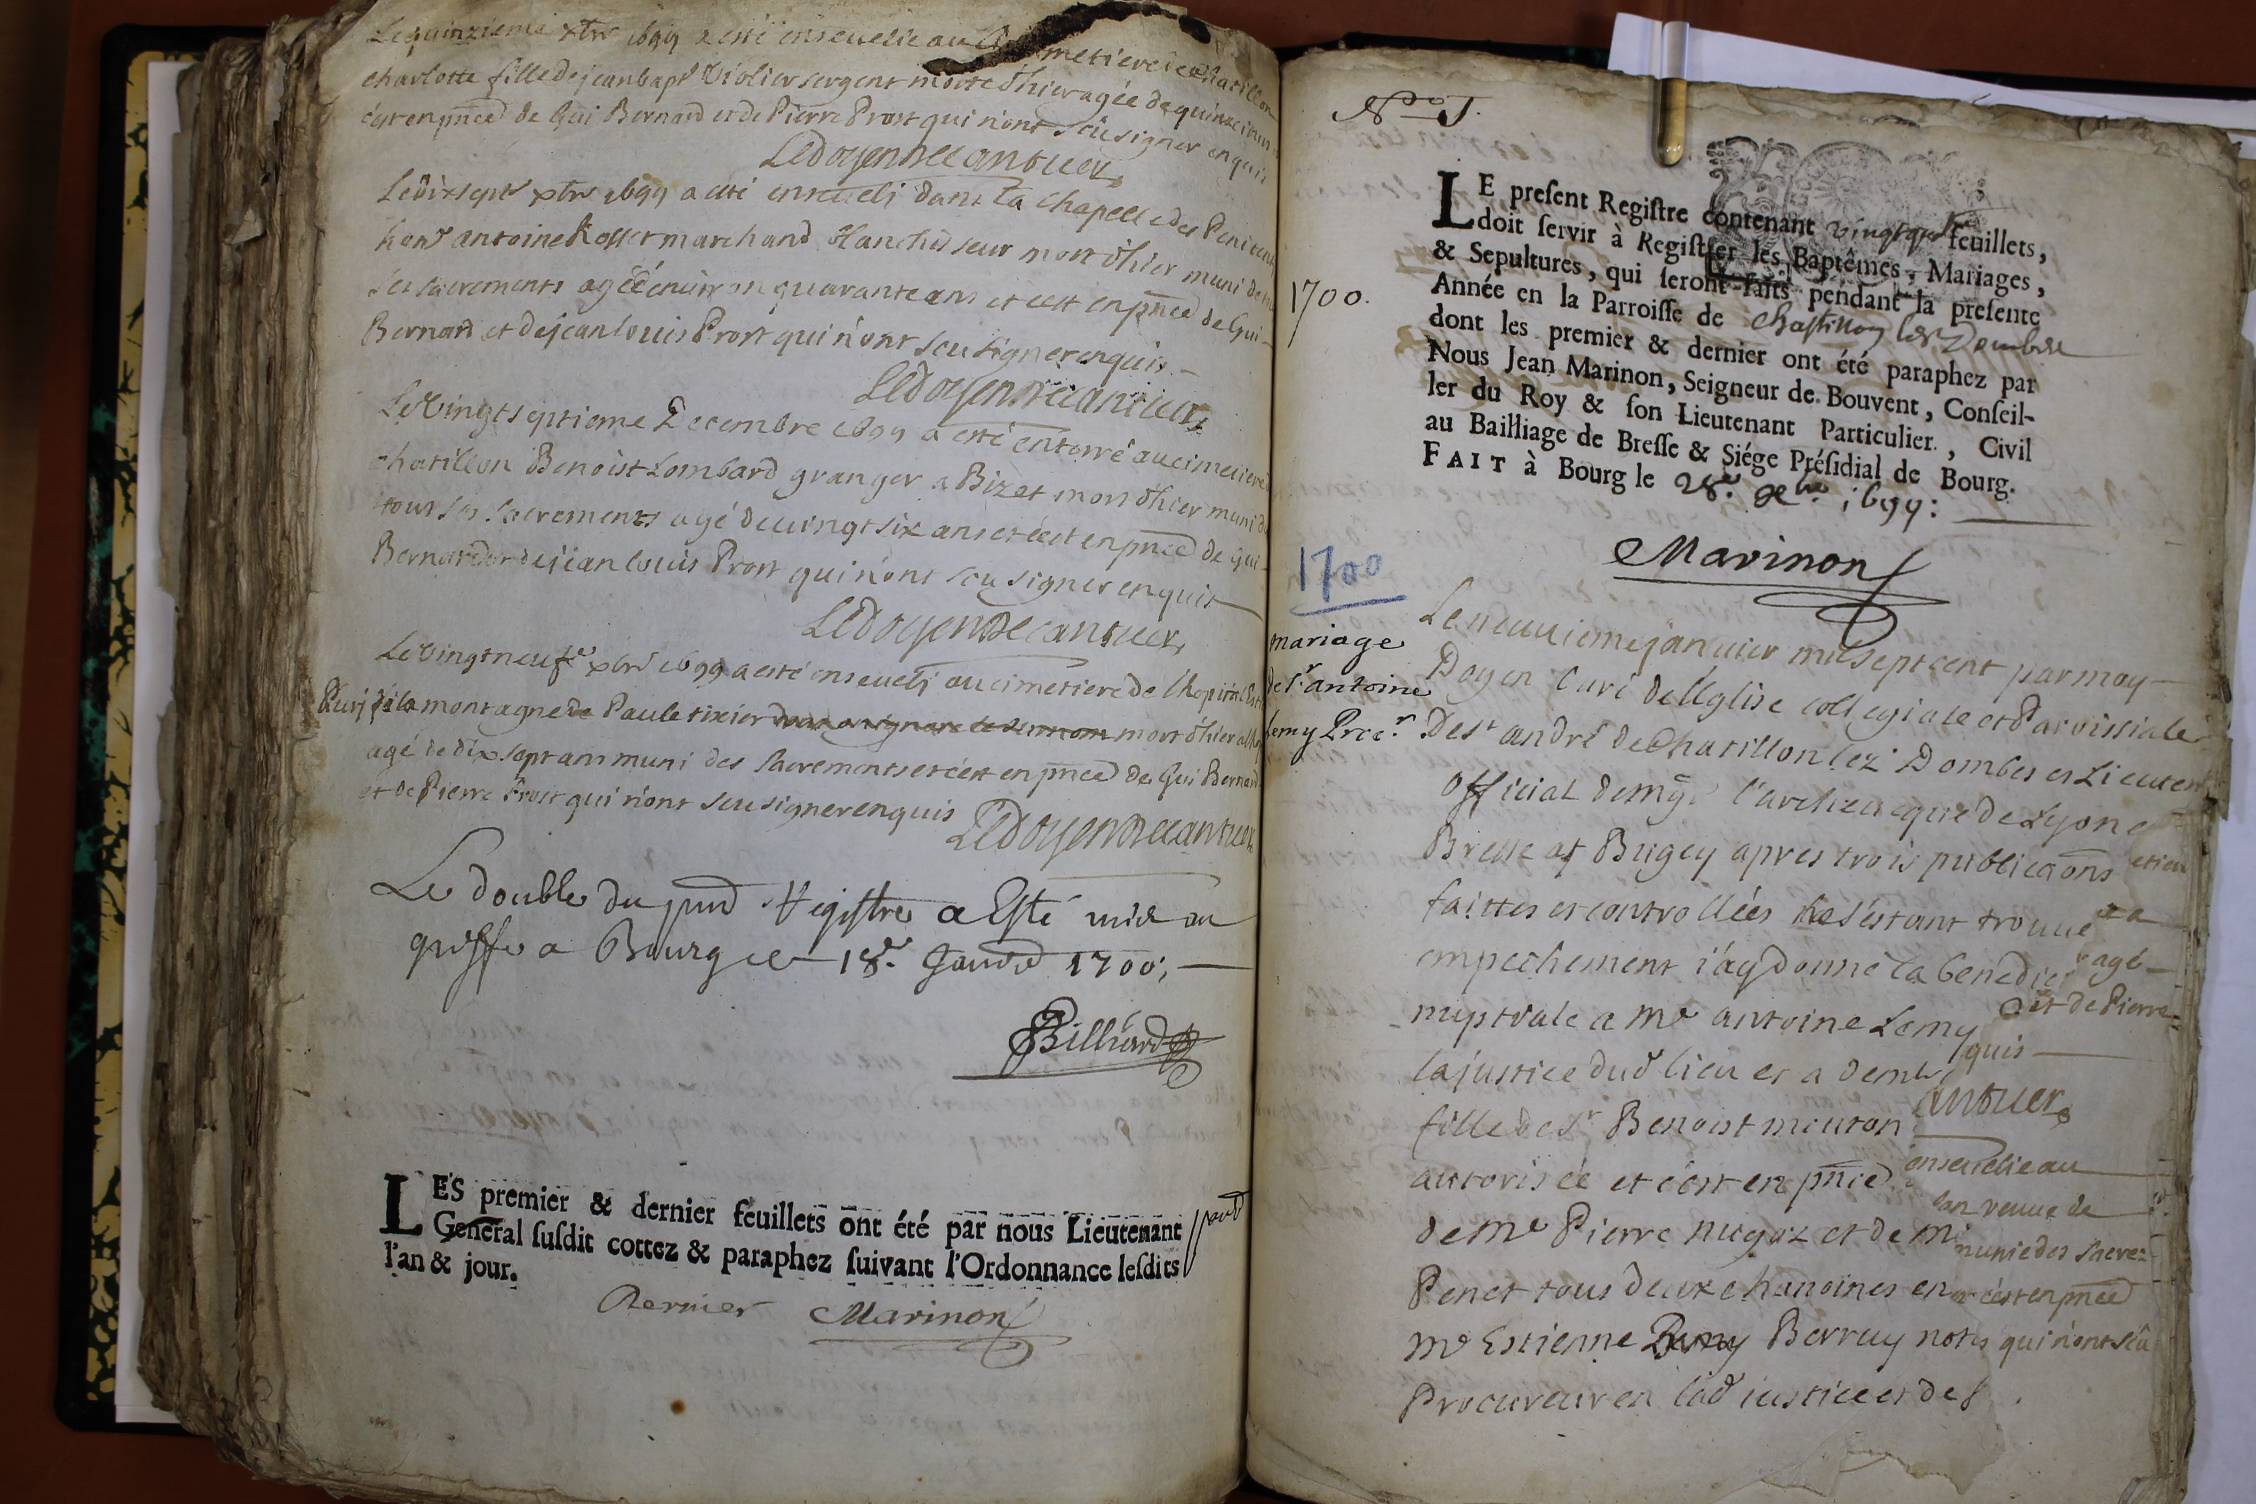 Le quinzieme xbre 1699 a esté ensevelie au cimetiere de chatillon
charlotte fille de jean bapt Violier sergent morte d'hier agée de quinze
c'est en pnce de Gui Bernard et de Pierre Prost qui n'ont sceu signer enquis
Ledoyen Decantuer
Le dix sept xbre 1699 a eté enseveli dans la chapelle des Penitents
hon antoine Rosset marchand blanchisseur mort d'hier muni de
ses sacrements agé environ quarante ans et c'est en pnce de Gui
Bernard et de jean louis Prost qui n'ont sceu signer enquis
Ledoyen Decantuer
Le Vingt septieme Decembre 1699 a esté enterré au cimetiere
chatillon Benoist Lombard granger a Bizet mort d'hier muni de
tous ses sacrements agé de vingt six ans et c'est en pnce de Gui
Bernard et de jean louis Prost qui n'ont sceu signer enquis
Ledoyen Decantuer
Le Vingt neufe xbre 1699 a esté enseveli au cimetiere de l'hopital
de la montagne de Paule tixier mort d'hier
agé de dix sept ans muni des sacrements et c'est en pnce de Gui Bernard
et de Pierre Prost qui n'ont sceu signer enquis
Ledoyen Decantuer
Le double du pnt Registre a Esté mis au
greffe a Bourg ce 18e Janvr 1700,
Billiard
LES premier & dernier feuillets ont été par nous Lieutenant
General susdit cottez & paraphez suivant l'Ordonnance lesdits
l'an & jour.
Dernier Marinon
No 1.
LE present Registre contenant vingt quatre feuillets,
doit servir à Registrer les Baptêmes, Mariages,
& Sepultures, qui seront faits pendant la presente
1700.
Année en la Parroisse de Chastillon les Dombes
dont les premier & dernier ont été paraphez par
Nous Jean Marinon, Seigneur de Bouvent, Conseil-
ler du Roy & son Lieutenant Particulier, Civil
au Bailliage de Bresse & Siége Présidial de Bourg.
FAIT à Bourg le 28e xbre 1699:
Marinon
1700
mariage
de sr antoine
Lemy Procr
Le neuvieme janvier mil sept cent par moy
Doyen curé de l'Eglise collegiale et Parroissiale
De st andré de chatillon lez Dombes et Lieuten
official de mgr l'archeveque de Lyon
Bresse et Bugey apres trois publicaons
faittes et controllées ne s'estant trouvé
empechement j'ay donné la benedic
nuptiale a Me antoine Lemy
la justice dud lieu et a demlle
fille de sr Benoist mouton
autorisée et c'est en pnce
de Me Pierre nugoz et de
Penet tous deux chanoines
Me Estienne Berruy nore
Procureur en lad justice et de
agé
et de Pierre
quis
antuer
ensevelie au
venue de
munie des sacre-
c'est en pnce
qui n'ont sceu